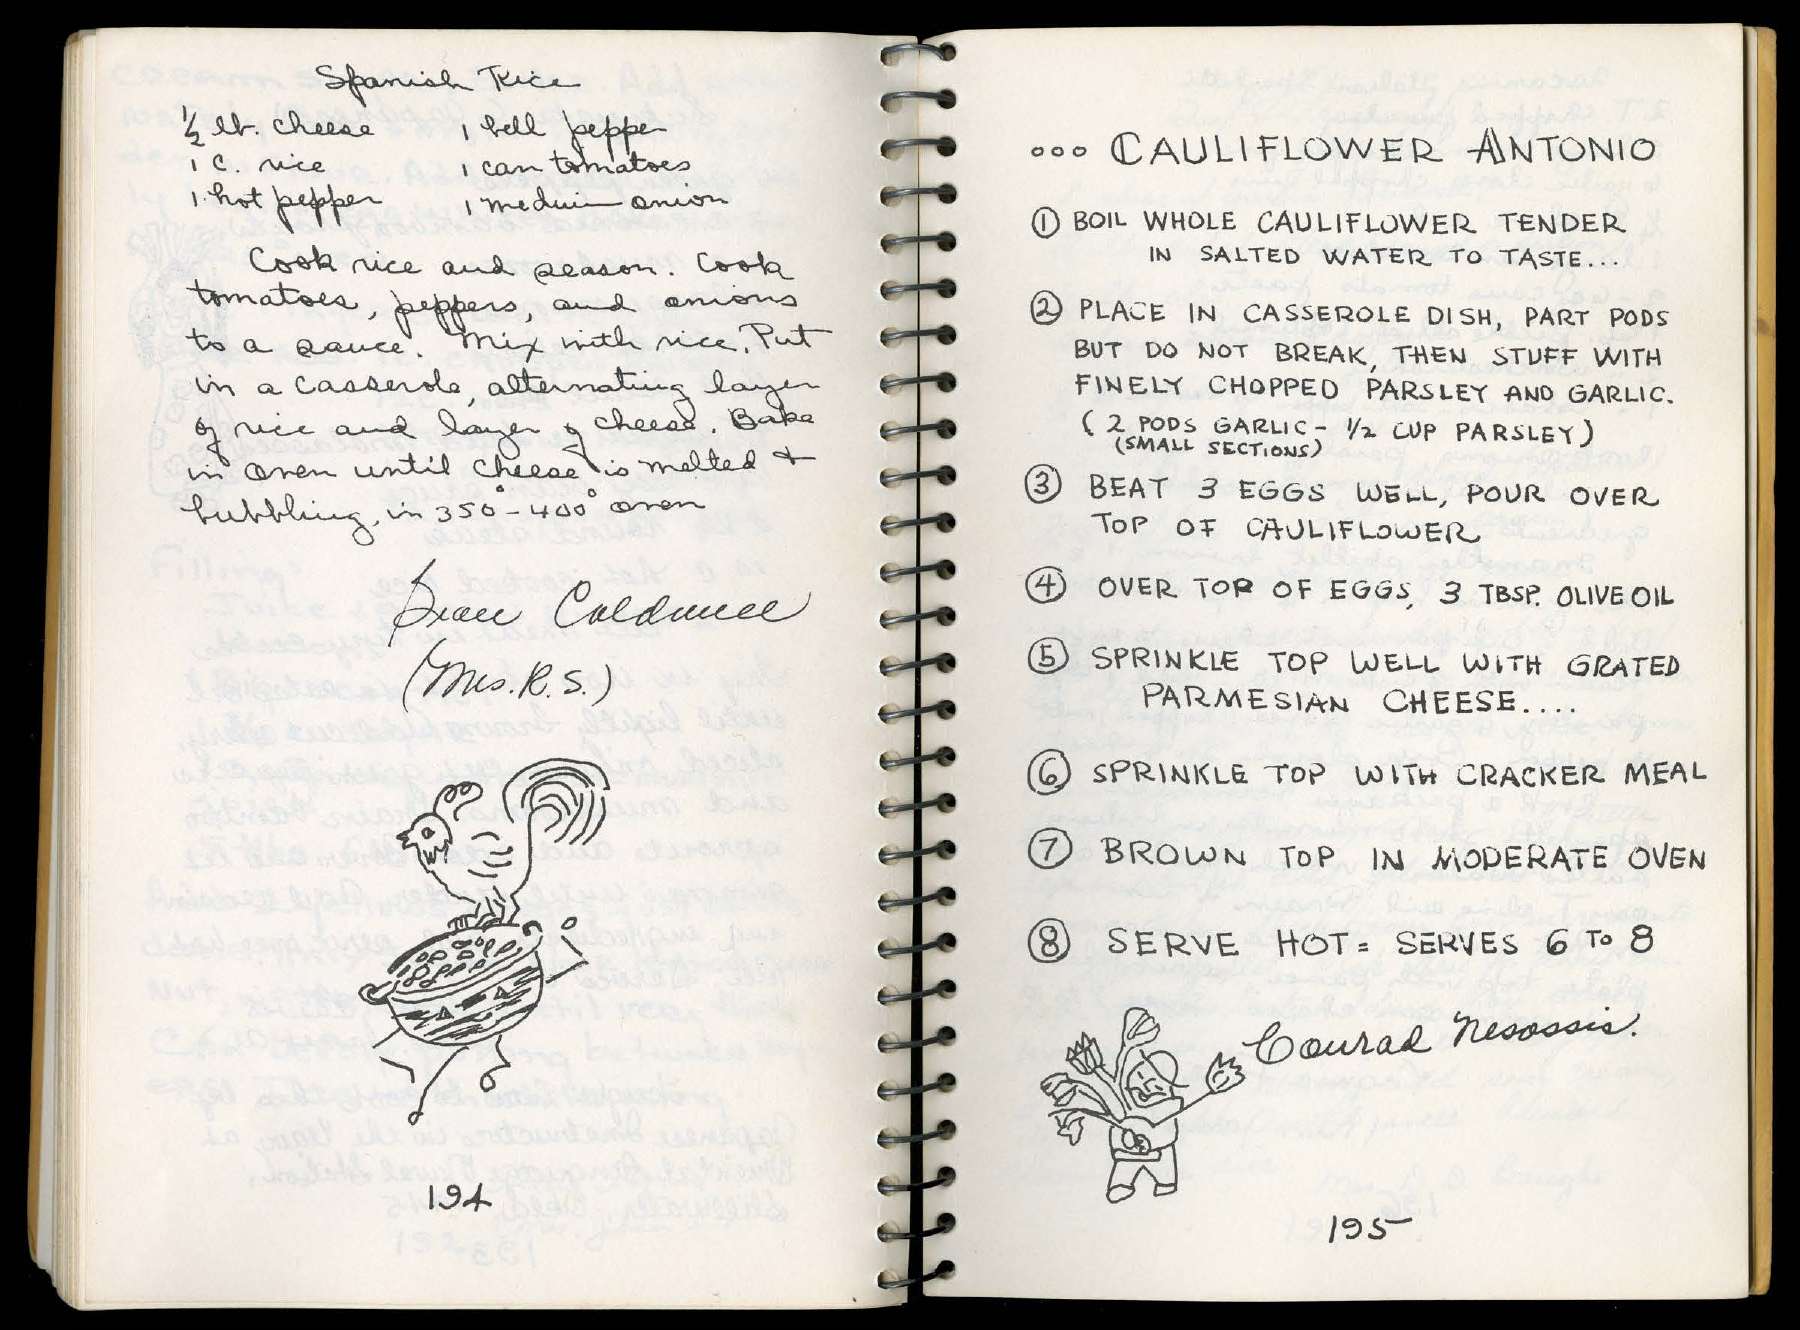 Spanish Rice
½ lb. cheese 1 bell pepper
1 c. rice 1 can tomatoes
1 hot pepper 1 medium onion
Cook rice and season. Cook
tomatoes, peppers, and onions
to a sauce. Mix with rice. Put
in a casserole, alternating layer
of rice and layer of cheese. Bake
in oven until cheese is melted +
bubbling, in 350° - 400° oven
Caldwell
(Mrs. R. S.)
194
... CAULIFLOWER ANTONIO
① BOIL WHOLE CAULIFLOWER TENDER
IN SALTED WATER TO TASTE...
② PLACE IN CASSEROLE DISH, PART PODS
BUT DO NOT BREAK, THEN STUFF WITH
FINELY CHOPPED PARSLEY AND GARLIC.
( 2 PODS GARLIC - ½ CUP PARSLEY)
(SMALL SECTIONS)
③ BEAT 3 EGGS WELL, POUR OVER
TOP OF CAULIFLOWER
④ OVER TOP OF EGGS, 3 TBSP. OLIVE OIL
⑤ SPRINKLE TOP WELL WITH GRATED
PARMESIAN CHEESE....
⑥ SPRINKLE TOP WITH CRACKER MEAL
⑦ BROWN TOP IN MODERATE OVEN
⑧ SERVE HOT = SERVES 6 TO 8
Conrad Nesossis.
195